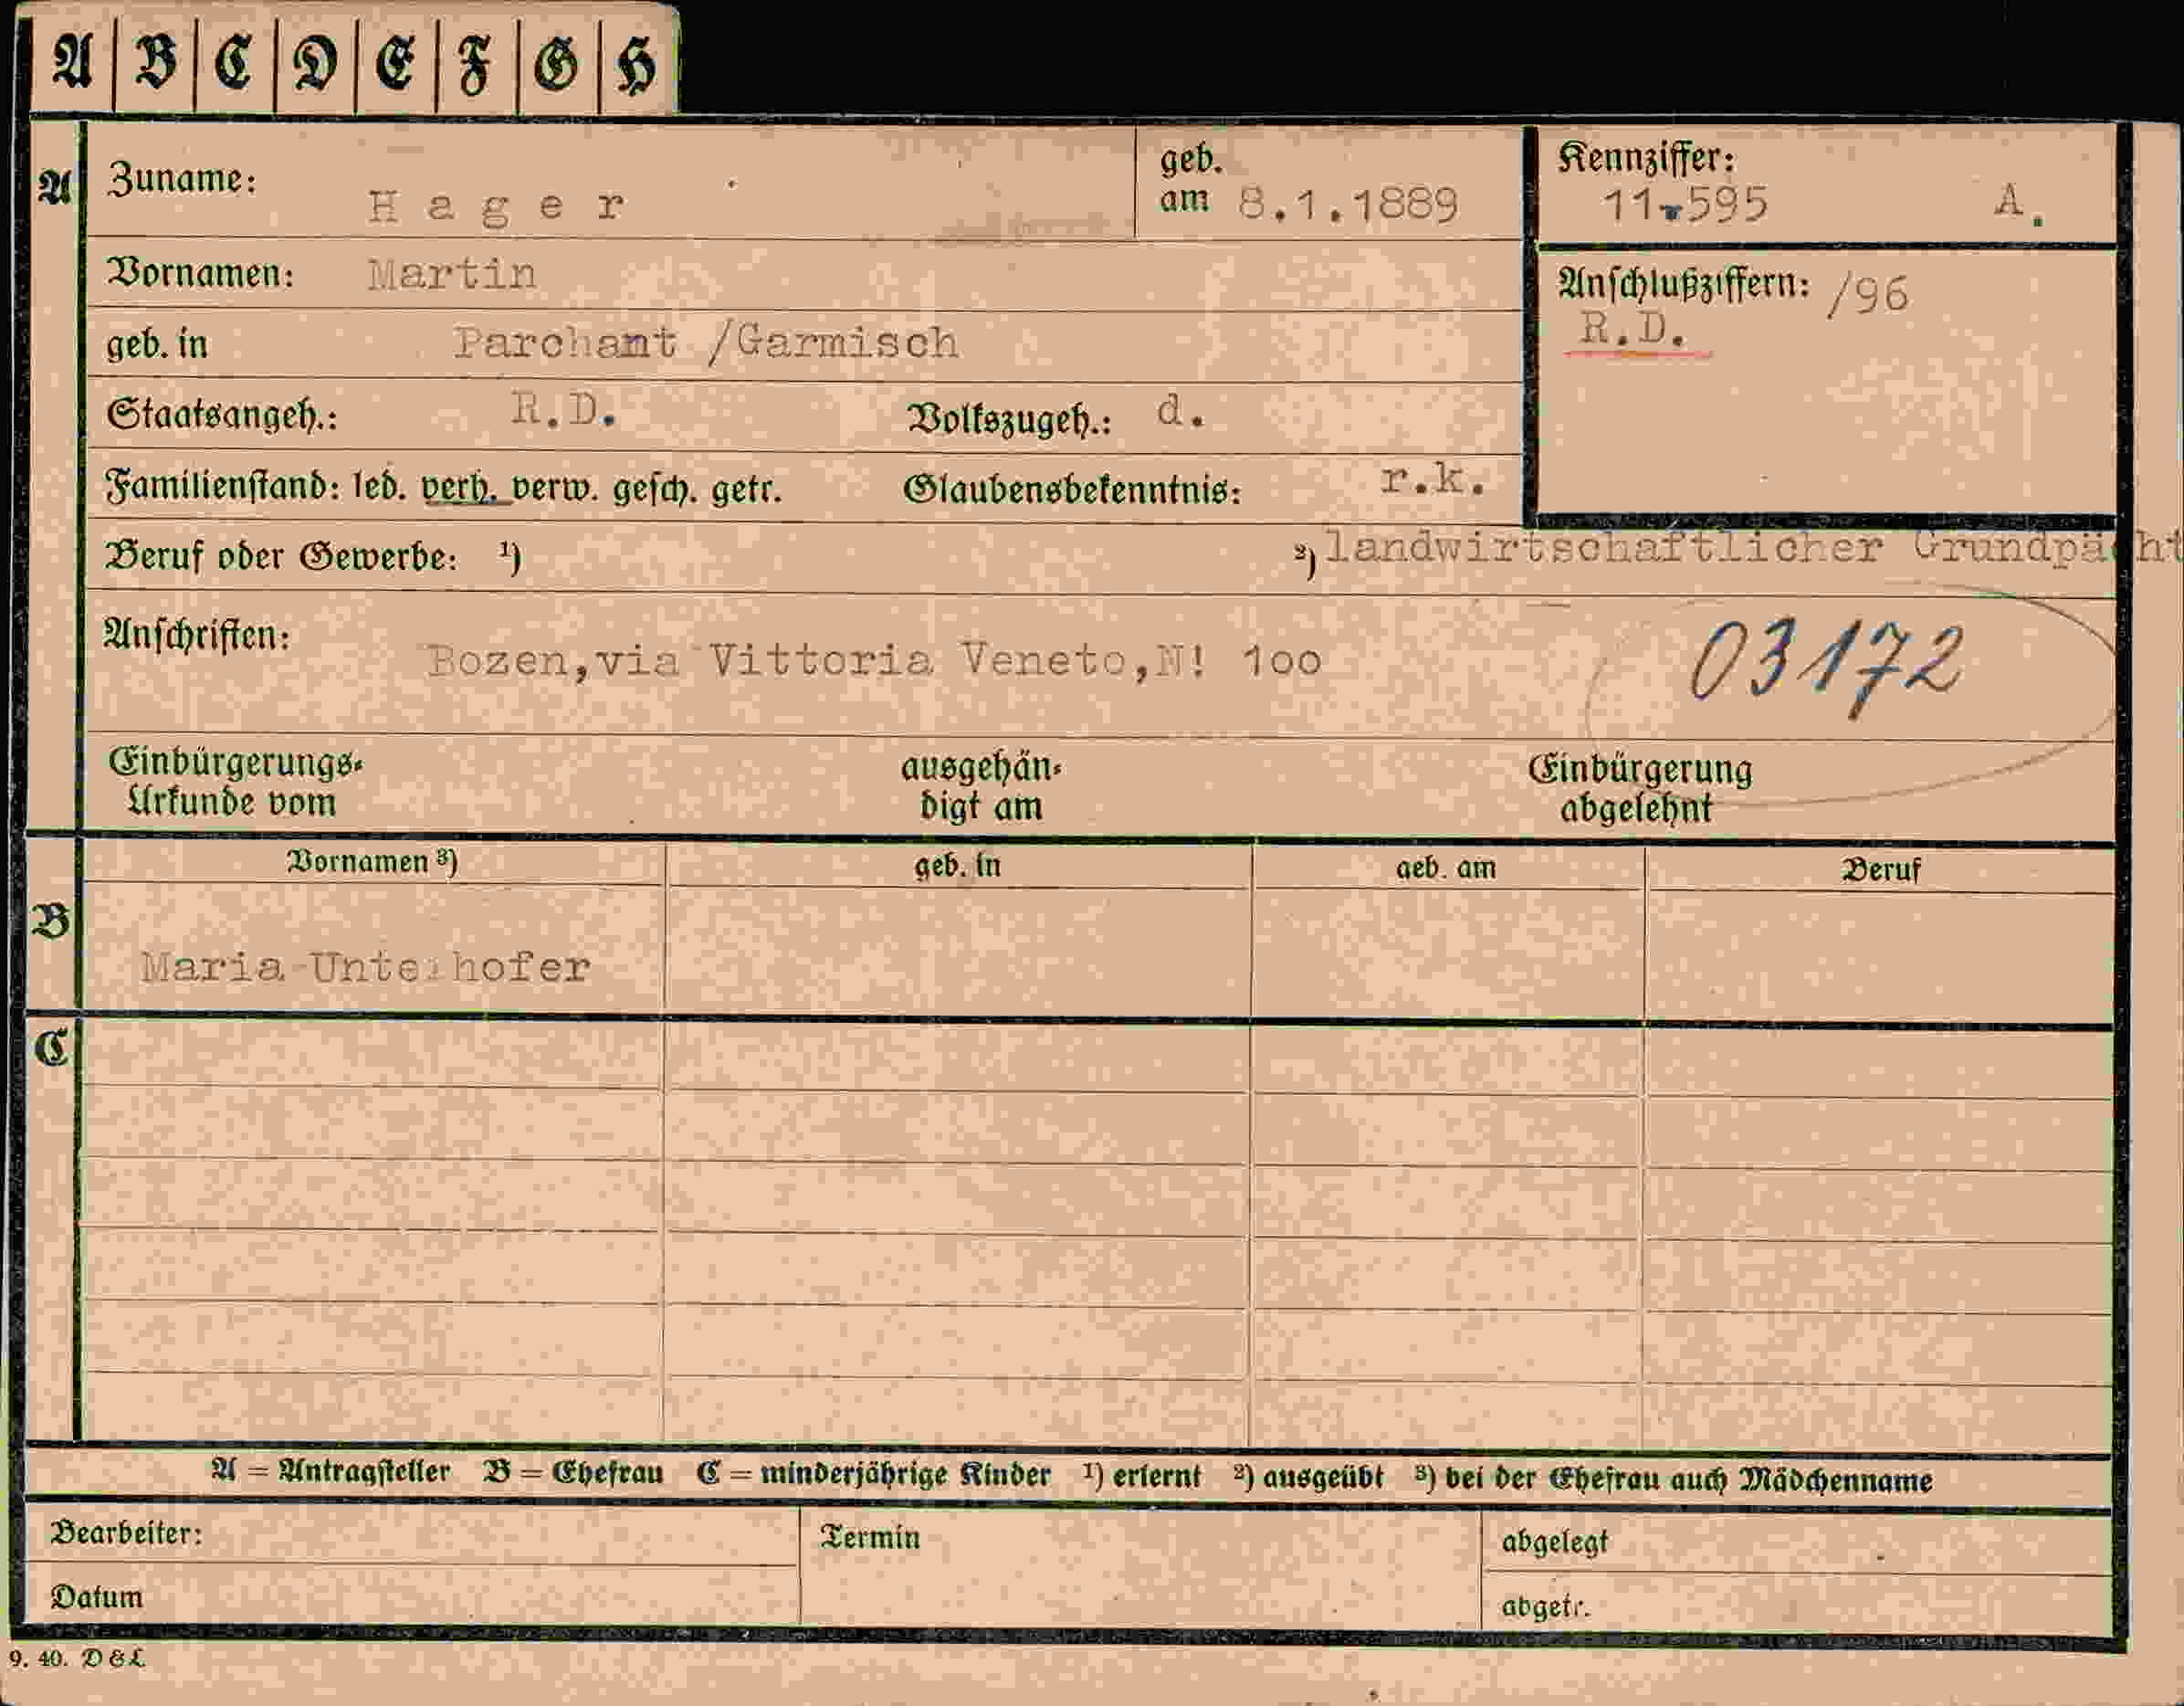 A B C D E F G H
A Zuname: Hager geb. am 8.1.1889 Kennziffer: 11-595 A.
Vornamen: Martin Anschlußziffern: /96
R.D.
geb. in Parchant /Garmisch
Staatsangeh.: R.D. Volkszugeh.: d.
Familienstand: led. verh. verw. gesch. getr. Glaubensbekenntnis: r.k.
Beruf oder Gewerbe: ¹) ²) landwirtschaftlicher Grundpächt
Anschriften: Bozen,via Vittoria Veneto,N! 100 03172
Einbürgerungs- ausgehän- Einbürgerung
Urkunde vom digt am abgelehnt
Vornamen ³) geb. in geb. am Beruf
B
Maria Unterhofer
C
A = Antragsteller B = Ehefrau C = minderjährige Kinder ¹) erlernt ²) ausgeübt ³) bei der Ehefrau auch Mädchenname
Bearbeiter: Termin abgelegt
Datum abgetr.
9. 40. D & L